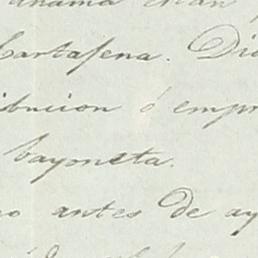 Cartagena. Di
ibucion ó empr
bayoneta.
o antes de ay